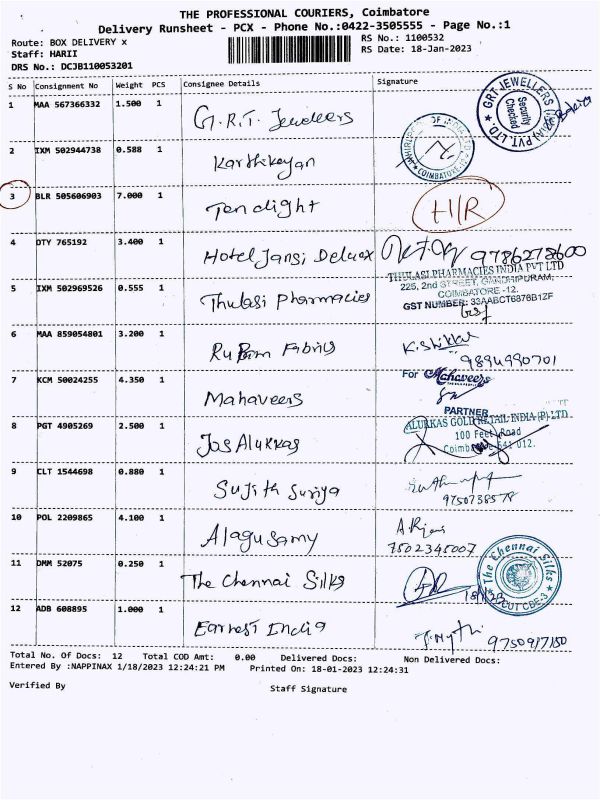 THE PROFESSIONAL COURIERS, Coimbatore
Delivery Runsheet - PCX - Phone No.:0422-3505555 - Page No.:1
Route: BOX DELIVERY x
RS No.: 1100532
Staff: HARII
RS Date: 18-Jan-2023
DRS No.: DCJB110053201
S No Consignment No Weight PCS Consignee Details Signature
1 MAA 567366332 1.500 1 G.R.T. Jewelers
GRT JEWELLERS PVT. LTD. Security Checked
2 IXM 502944738 0.588 1 Karthikeyan
COIMBATORE
3 BLR 505606903 7.000 1 Tendlight
4 OTY 765192 3.400 1 Hotel Jansi Deluex 9786278600
THULASI PHARMACIES INDIA PVT LTD
225, 2nd STREET, GANDHIPURAM,
COIMBATORE -12.
GST NUMBER: 33AABCT6876B1ZF
5 IXM 502969526 0.555 1 Thulasi Pharmacies
6 MAA 859054801 3.200 1 Fabrics
9894990701
For Mahaveers
7 KCM 50024255 4.350 1 Mahaveers
PARTNER
ALUKKAS GOLD RETAIL INDIA (P) LTD
8 PGT 4905269 2.500 1 Jos Alukkas
100 Feet Road
641 012.
9 CLT 1544698 0.880 1 Sujith Suriya
10 POL 2209865 4.100 1 Alagusamy
7502345007
11 DMM 52075 0.250 1 The Chennai Silks
The Chennai Silks
12 ADB 608895 1.000 1 Earnest India
9750917150
Total No. Of Docs: 12 Total COD Amt: 0.00 Delivered Docs: Non Delivered Docs:
Entered By :NAPPINAX 1/18/2023 12:24:21 PM Printed On: 18-01-2023 12:24:31
Verified By
Staff Signature